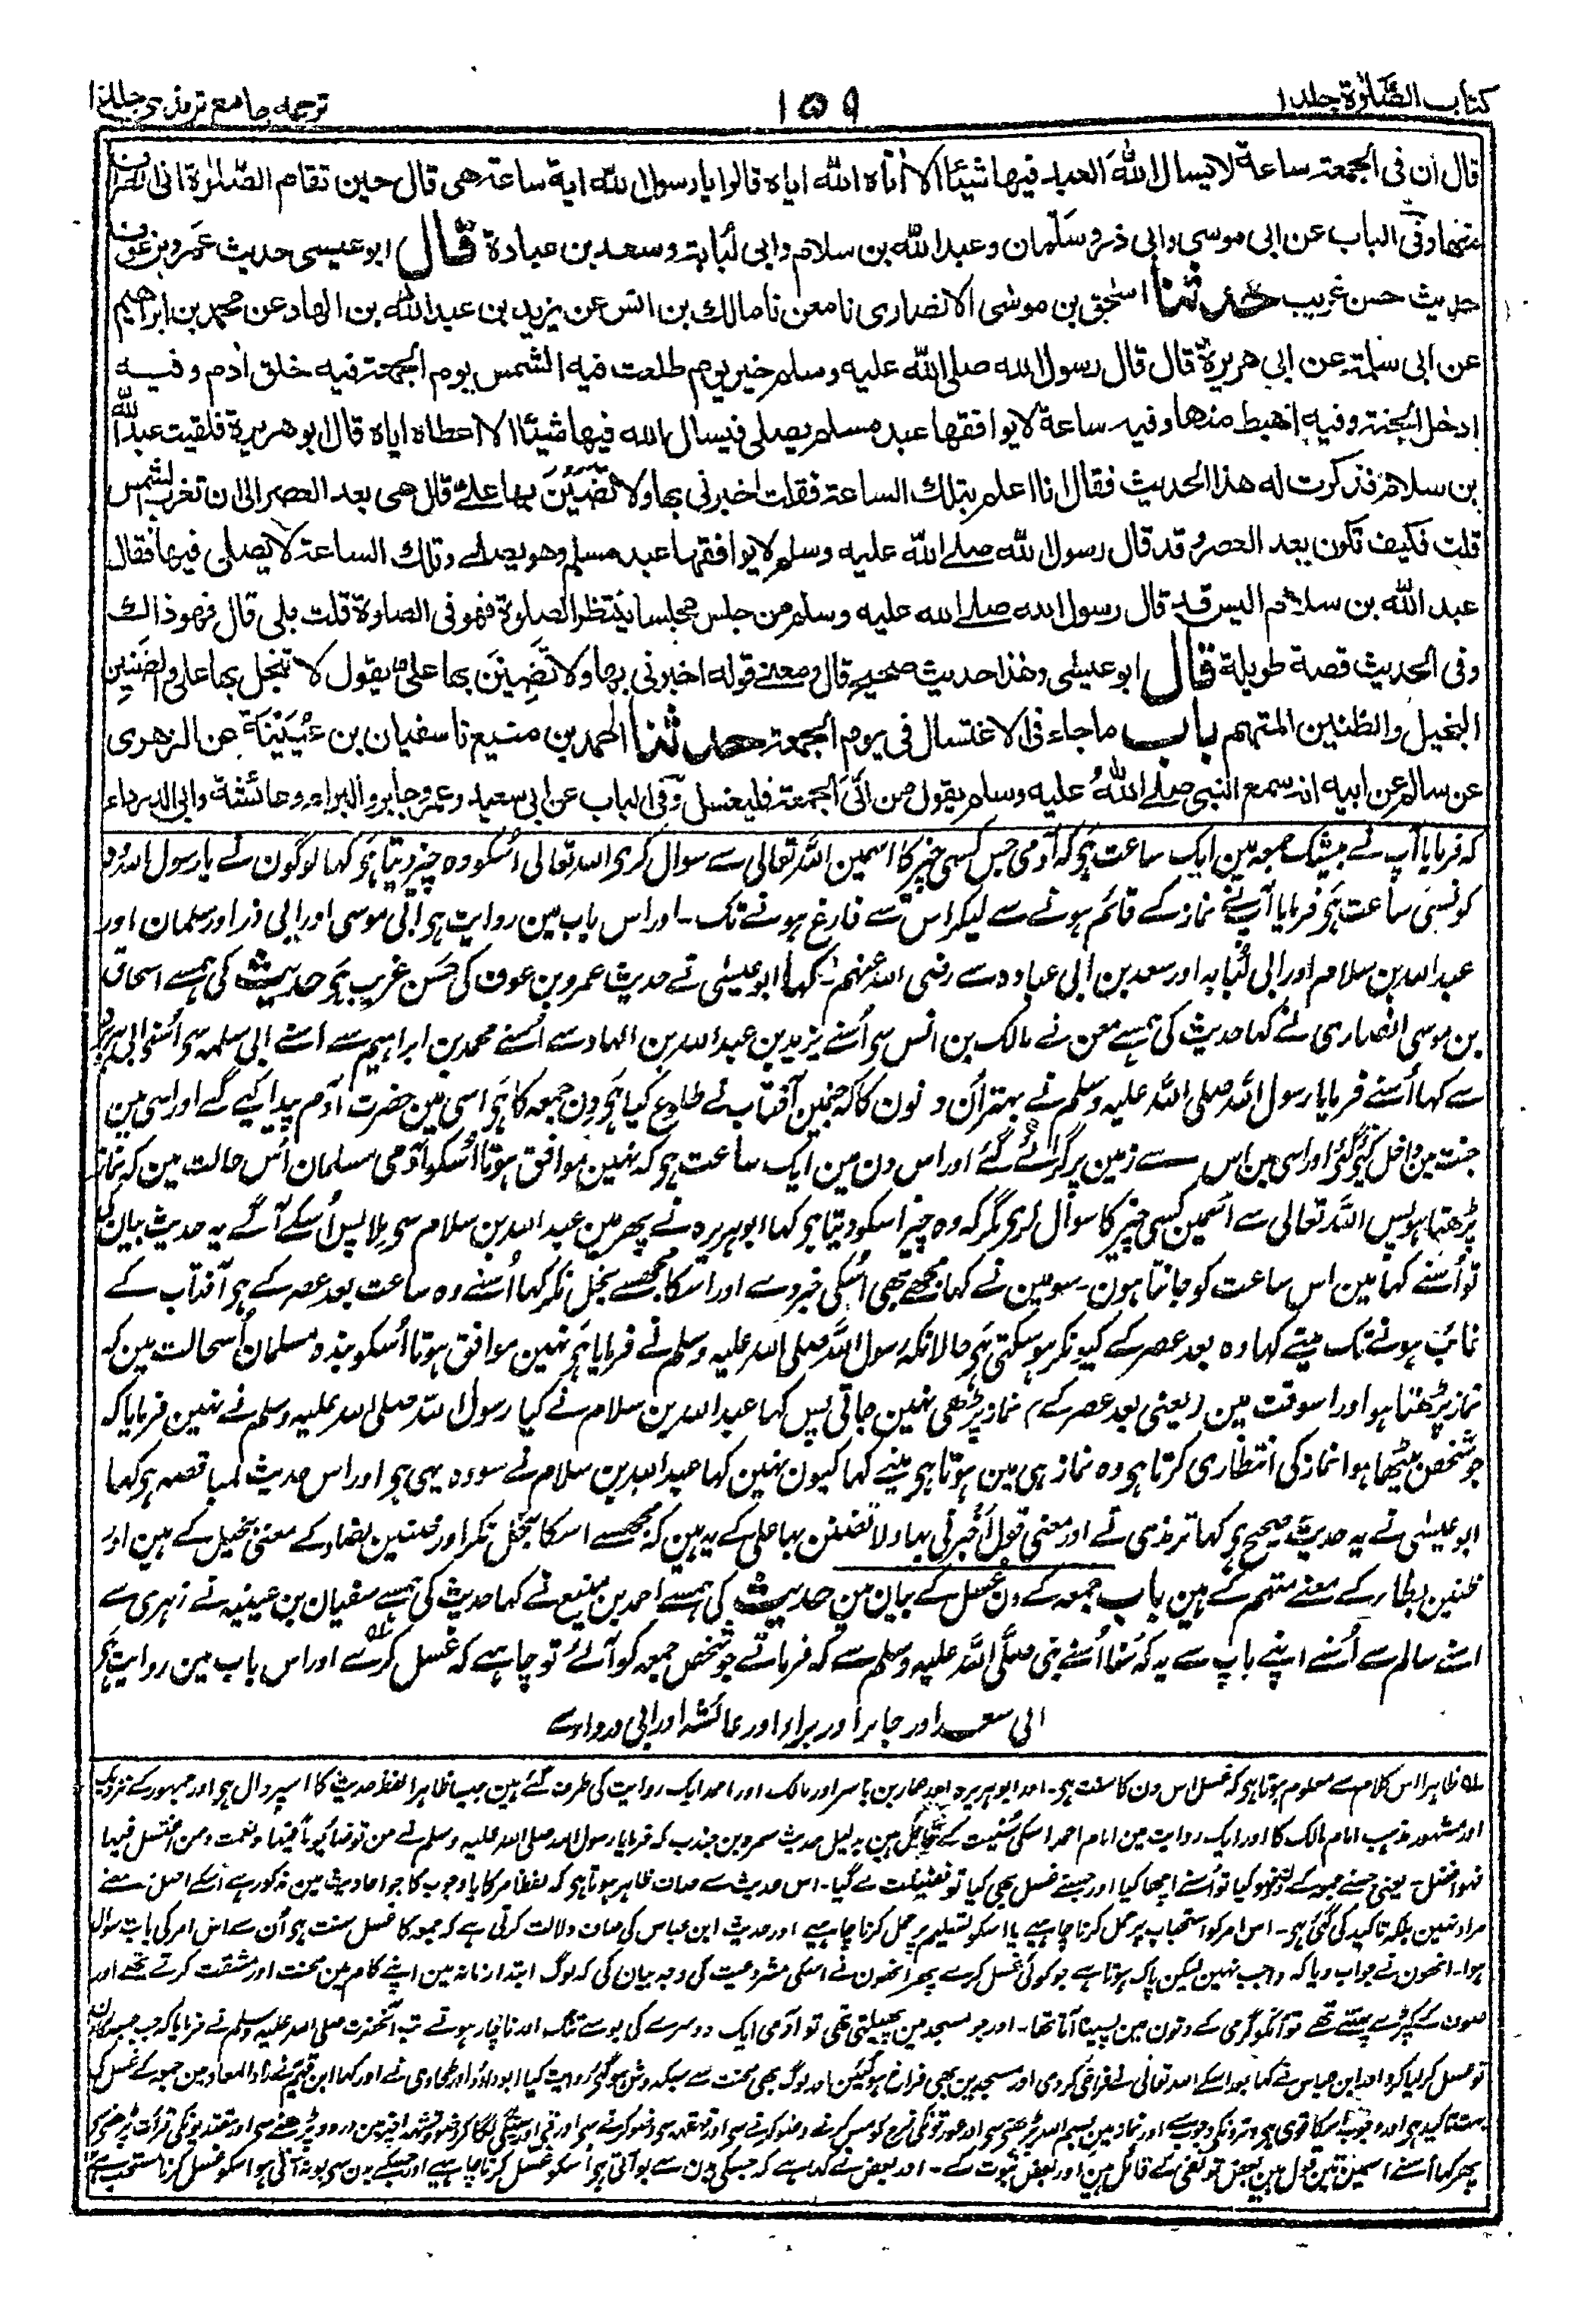 كتاب الصلوٰة جلد ا
١٥٩
ترجمه جامع ترمذي جلد ا
قال ان فى الجمعة ساعة لا يسال الله العبد فيها شيئا الا اٰتاه الله اياه قالوا يا رسول الله اية ساعة هى قال حين تقام الصلوٰة الى انصراف
منها وفى الباب عن ابى موسى وابى ذر وسلمان وعبد الله بن سلام وابى لبابة وسعد بن عبادة قال ابو عيسى حديث عمرو بن عوف
حديث حسن غريب حدثنا اسحٰق بن موسى الانصارى نا معن نا مالك بن انس عن يزيد بن عبد الله بن الهاد عن محمد بن ابراهيم
عن ابى سلمة عن ابى هريرة قال قال رسول الله صلى الله عليه وسلم خير يوم طلعت فيه الشمس يوم الجمعة فيه خلق اٰدم وفيه
ادخل الجنة وفيه اهبط منها وفيه ساعة لا يوافقها عبد مسلم يصلى فيسال الله فيها شيئا الا اعطاه اياه قال ابو هريرة فلقيت عبد الله
بن سلام فذكرت له هذا الحديث فقال انا اعلم بتلك الساعة فقلت اخبرنى بها ولا تضنن بها على قال هى بعد العصر الى ان تغرب الشمس
قلت فكيف تكون بعد العصر وقد قال رسول الله صلى الله عليه وسلم لا يوافقها عبد مسلم وهو يصلى وتلك الساعة لا يصلى فيها فقال
عبد الله بن سلام اليس قد قال رسول الله صلى الله عليه وسلم من جلس مجلسا ينتظر الصلوة فهو فى الصلوة قلت بلى قال فهو ذاك
وفى الحديث قصة طويلة قال ابو عيسى وهذا حديث صحيح قال ومعنى قوله اخبرنى بها ولا تضنن بها على يقول لا تبخل بها على والضنين
البخيل والظنين المتهم باب ما جاء فى الاغتسال فى يوم الجمعة حدثنا احمد بن منيع نا سفيان بن عيينة عن الزهرى
عن سالم عن ابيه انه سمع النبى صلى الله عليه وسلم يقول من اتى الجمعة فليغتسل وفى الباب عن ابى سعيد وعمر وجابر والبراء وعائشة وابى الدرداء
که فرمایا آپ نے بیشک جمعہ مین ایک ساعت ہی کہ آدمی جس کسی چیز کا اسمین اللہ تعالی سے سوال کری اللہ تعالی اُسکو وہ چیز دیتا ہی کہا لوگون نے یا رسول اللہ وہ
کونسی ساعت ہی فرمایا آپنے نماز کے قائم ہونے سے لیکر اس سے فارغ ہونے تک ۔ اور اس باب مین روایت ہی ابی موسی اور ابی ذر اور سلمان اور
عبد اللہ بن سلام اور ابی لبابہ اور سعد بن ابی عبادہ سے رضی اللہ عنہم ۔ کہا ابو عیسٰی نے حدیث عمرو بن عوف کی حسن غریب ہی حدیث کی ہمسے اسحاق
بن موسی انصاری نے کہا حدیث کی ہمسے معن نے مالک بن انس سی اُسنے یزید بن عبد اللہ بن الہاد سے اُسنے محمد بن ابراہیم سے اسنے ابی سلمہ سی اُسنی ابی ہریرہ
سے کہا اُسنے فرمایا رسول اللہ صلی اللہ علیہ وسلم نے بہتر اُن دنون کا کہ جنمین آفتاب نے طلوع کیا ہی دن جمعہ کا ہی اسی مین حضرت آدم پیدا کیے گے اور اسی مین
جنت مین داخل کئی گئی اور اسی مین اس سے زمین پر گرائے گئے اور اس دن مین ایک ساعت ہی کہ نہین موافق ہوتا اُسکو آدمی مسلمان اُس حالت مین کہ نماز
پڑھتا ہو پس اللہ تعالی سے اُسمین کسی چیز کا سوال کری مگر کہ وہ چیز اسکو دیتا ہی کہا ابو ہریرہ نے پھر مین عبد اللہ بن سلام سی ملا پس اُسکے آگے یہ حدیث بیان کی
تو اُسنے کہا مین اس ساعت کو جانتا ہون ۔ سو مین نے کہا مجھے بھی اُسکی خبر دے اور اسکا مجھسے بخل نکر کہا اُسنے وہ ساعت بعد عصر کے ہی آفتاب کے
غائب ہونے تک مینے کہا وہ بعد عصر کے کیونکر ہو سکتی ہی حالانکہ رسول اللہ صلی اللہ علیہ وسلم نے فرمایا ہی نہین موافق ہوتا اُسکو بندہ مسلمان اُسحالت مین کہ
نماز پڑھتا ہو اور اسوقت مین (یعنی بعد عصر کے) نماز پڑھی نہین جاتی پس کہا عبد اللہ بن سلام نے کیا رسول اللہ صلی اللہ علیہ وسلم نے نہین فرمایا کہ
جو شخص بیٹھا ہوا نماز کی انتظاری کرتا ہی وہ نماز ہی مین ہوتا ہی مینے کہا کیون نہین کہا عبد اللہ بن سلام نے سو وہ یہی ہی اور اس حدیث لمبا قصہ ہی کہا
ابو عیسٰی نے یہ حدیث صحیح ہی کہا ترمذی نے اور معنی قول اَخبرنی بہا ولا تضنن بہا علی کے یہ ہین کہ مجھسے اسکا بخل نکر اور ضنین بضاد کے معنی بخیل کے ہین اور
ظنین بظار کے معنے متہم کے ہین باب جمعہ کے دن غسل کے بیان مین حدیث کی ہمسے احمد بن منیع نے کہا حدیث کی ہمسے سفیان بن عیینہ نے زہری سے
اسنے سالم سے اُسنے اپنے باپ سے یہ کہ سُنا اُسنے نبی صلی اللہ علیہ وسلم سے کہ فرماتے جو شخص جمعہ کو آئے تو چاہیے کہ غسل کرے اور اس باب مین روایت ہی
ابی سعید اور جابر اور براء اور عائشہ اور ابی درداء سے
ظاہرا اس کلام سے معلوم ہوتا ہی کہ غسل اس دن کا سنت ہی ۔ اور ابو ہریرہ اور عمار بن یاسر اور مالک اور احمد ایک روایت کی طرف گئے ہین جیسا ظاہرا لفظ حدیث کا اسپر دال ہی اور جمہور کے نزدیک
اور مشہور مذہب امام مالک کا اور ایک روایت مین امام احمد اسکی سُنیت کے قائل ہین بدلیل حدیث سمرہ بن جندب کہ فرمایا رسول اللہ صلی اللہ علیہ وسلم نے من توضأ فبها ونعمت ومن اغتسل فبها
فہو افضل ۔ یعنی جسنے جمعہ کے وضو کیا تو اُسنے اچھا کیا اور جسنے غسل بھی کیا تو فضیلت لے گیا ۔ اس حدیث سے صاف ظاہر ہوتا ہی کہ لفظ امر کا یا وجوب کا جو احادیث مین مذکور ہے اُسکے اصل معنے
مراد نہین بلکہ تاکید کی گئی ہو ۔ اس امر کو استحباب پر حمل کرنا چاہیے یا اسکو تعلیم پر حمل کرنا چاہیے اور حدیث ابن عباس کی صاف دلالت کرتی ہے کہ جمعہ کا غسل سنت ہی اُن سے اس امر کی بابت سوال
ہوا ۔ انھون نے جواب دیا کہ واجب نہین لیکن پاک ہوتا ہے جو کوئی غسل کرے پھر انھون نے اسکی مشروعیت کی وجہ بیان کی کہ لوگ ابتداء زمانہ مین اپنے کام مین محنت اور مشقت کرتے تھے اور
صوف کے کپڑے پہنتے تھے تو انکو گرمی کے دنون مین پسینا آتا تھا ۔ اور جو مسجد مین پھیلتی تھی تو آدمی ایک دوسرے کی بو سے تنگ اور ناچار ہوتے تب آنحضرت صلی اللہ علیہ وسلم نے فرمایا کہ جب جمعہ کا دن
تو غسل کر لیا کرو اور ابن عباس نے کہا بعد اسکے اللہ تعالی نے فراخی کر دی اور مسجدین بھی فراخ ہو گئین اور لوگ بھی محنت سے سبکدوش ہو گئی روایت کیا ابو داؤد اور طحاوی نے اور کہا ابن قیم نے زاد المعاد مین جمعہ کے غسل کی
بہت تاکید ہی اور وجوب اسکا قوی ہی وتر کی وجوب سے اور نماز مین بسم اللہ پڑھنی سی
پھر کہا اُسنے اسمین تین قول ہین بعض تو نفی کے قائل ہین اور بعض ثبوت کے ۔ اور بعض نے کہا ہے کہ جسکی بدن سے بو آتی ہی اسکو غسل کرنا چاہیے اور جسکے بدن سی بو نہ آتی ہو اسکو غسل کرنا مستحب ہے